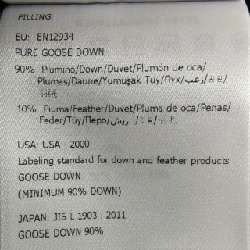 FILLING
EU: EN12934
PURE GOOSE DOWN
90% Piumino/Down/Duvet/Plumón de oca/
Plumas/Daune/Yumuşak Tüy/Пух/
10% Piuma/Feather/Duvet/Pluma de oca/Penas/
Feder/Tüy/Перо/ريش/
USA: USA - 2000
Labeling standard for down and feather products
GOOSE DOWN
(MINIMUM 90% DOWN)
JAPAN: JIS L 1903 : 2011
GOOSE DOWN 90%